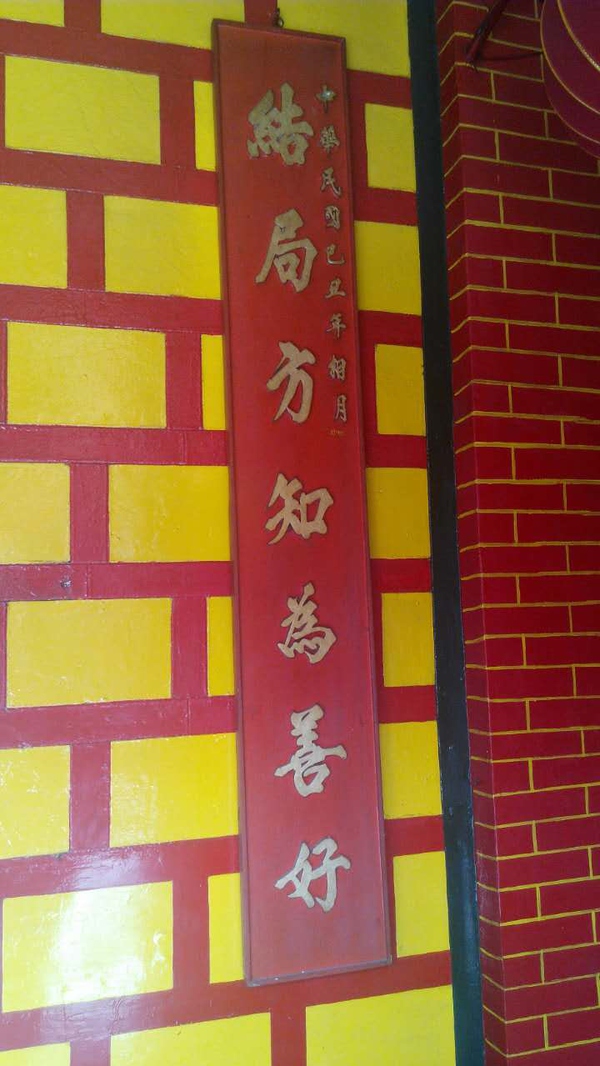 中華民國己丑年相月
結局方知為善好